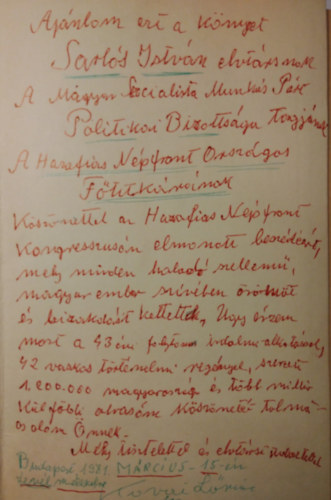 Ajánlom ezt a könyvet
Sarlós István elvtársnak
A Magyar Szocialista Munkás Párt
Politikai Bizottsága tagjának
A Hazafias Népfront Országos
Főtitkárának
Köszönettel az Hazafias Népfront
Kongresszusán elmondott beszédéért,
mely minden haladó szellemű,
magyar ember szívében örömöt
és bizakodást keltettek, Úgy érzem
most a 43 éve folytonos irodalmi alkotásaért,
42 vaskos történelmi regényt, szerető
1.200.000 magyarország és több millió
külföldi olvasóm köszönetét tolmá-
csolom Önnek.
Mély tisztelettel és elvtársi
Budapest 1981 MÁRCIUS - 15-én